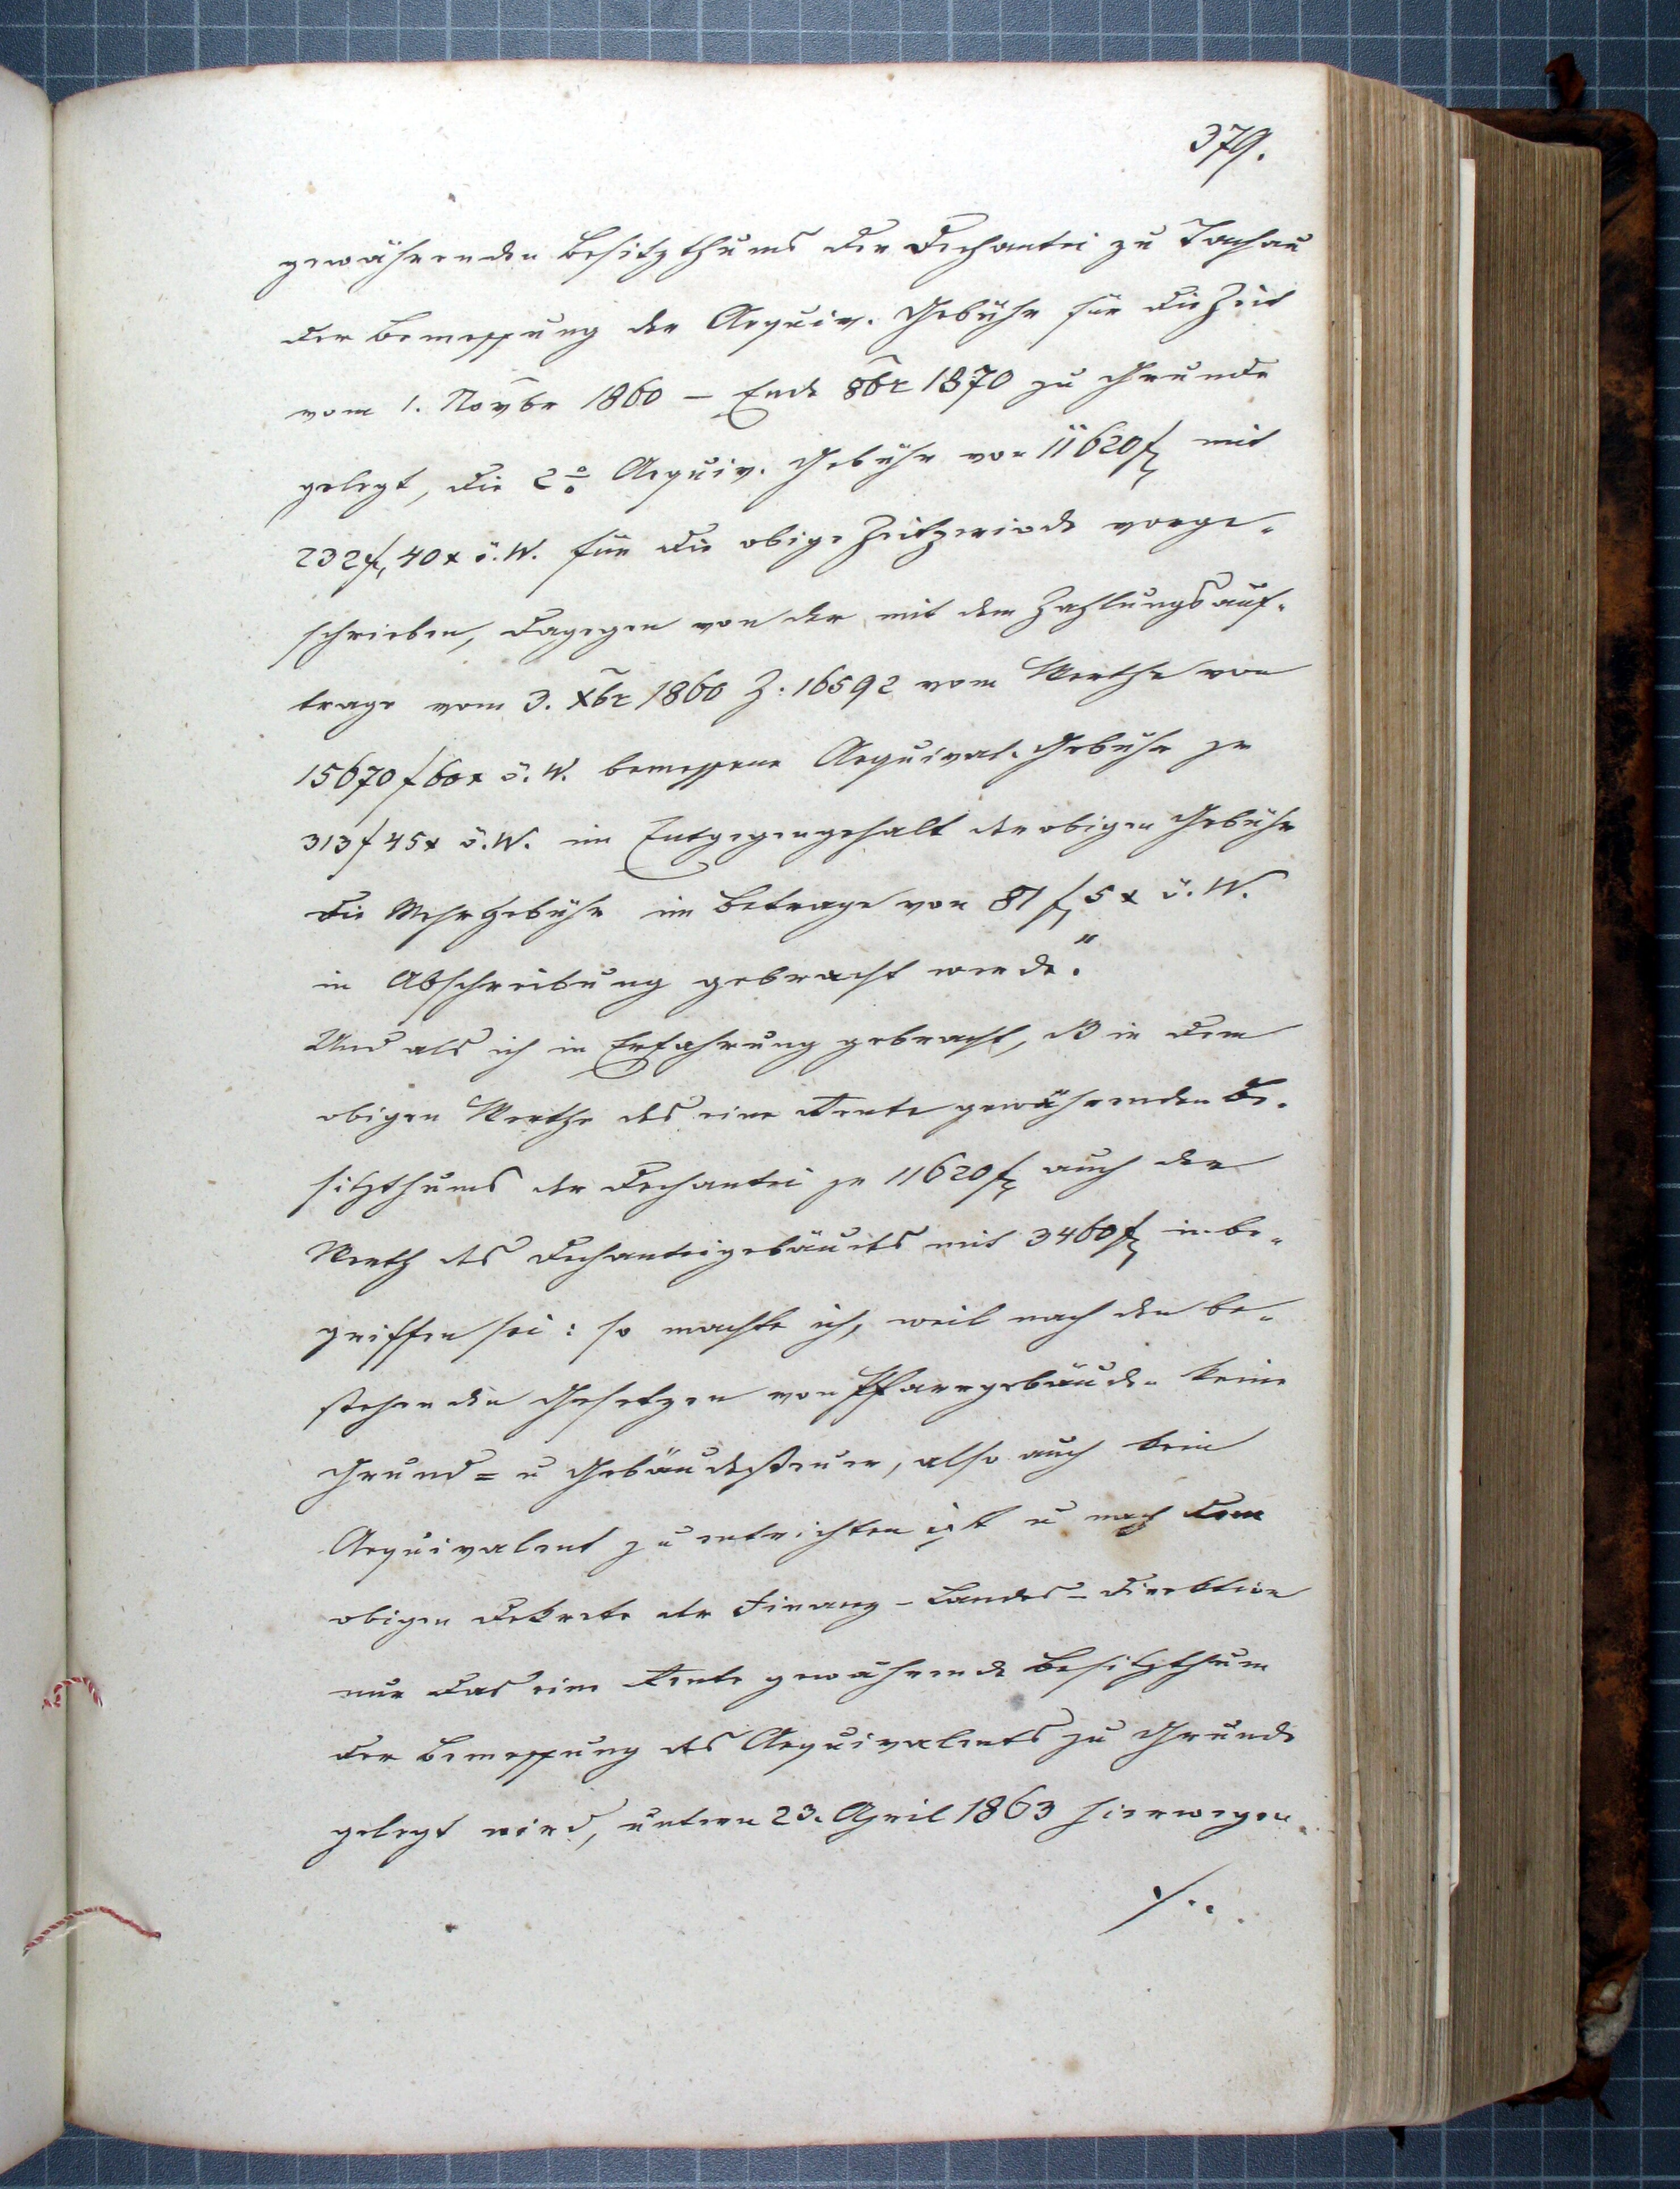 379.
gewährenden Besitzthums der Dechantei zu Tachau
der Bemessung der Aequiv. Gebühr für die Zeit
vom 1. Novbr 1860 – Ende 8br 1870 zu Grunde
gelegt, die 2% Aequiv. Gebühr von 11620 f mit
232 f, 40 x ö. W. für die obige Zeitperiode vorge-
schrieben, dagegen von der mit dem Zahlungsauf-
trage vom 3. Xbr 1860 Z: 16592 vom Werthe von
15670 f 60 x ö. W. bemessene Aequival. Gebühr zu
313 f 45 x ö. W. im Entgegengehalt der obigen Gebühr
die Mehrgebühr im Betrage von 81 f 5 x ö. W.
in Abschreibung gebracht werde."
Und als ich in Erfahrung gebracht, daß in dem
obigen Werthe des eine Rente gewährenden Be-
sitzthums der Dechantei zu 11620 f auch der
Werth des Dechanteigebäudes mit 3460 f inbe-
griffen sei: so machte ich, weil nach den be-
stehenden Gesetzen von Pfarrgebäuden keine
Grund- u Gebäudesteuer, also auch kein
Aequivalent zu entrichten ist u nach dem
obigen Dekrete der Finanz-Landes-Direktion
nur das eine Rente gewährende Besitzthum
der Bemessung des Aequivalents zu Grunde
gelegt wird, unterm 23. April 1863 hierwegen
./..